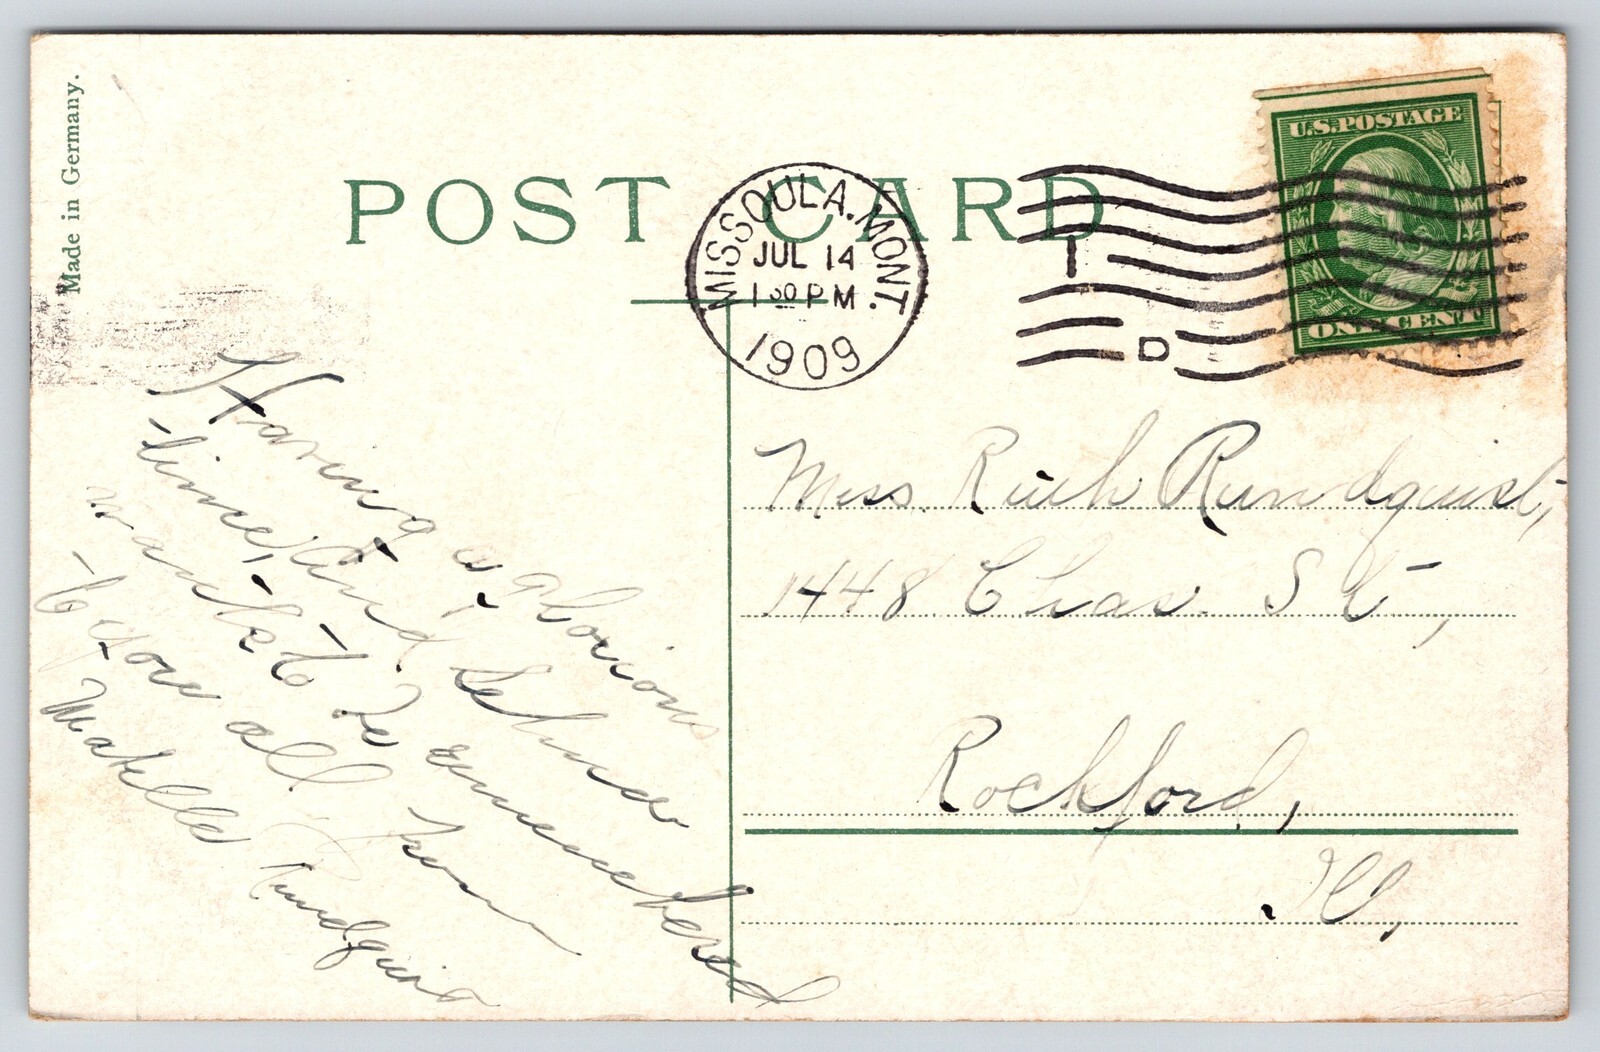 Made in Germany.
POST CARD
MISSOULA. MONT.
JUL 14
1 30 PM
1909
1
D
U.S. POSTAGE
ONE CENT
Having a glorious
time, and
wants to be remembered
to you all
Rundquist
Miss Ruth Rundquist,
1448 Chas. St,
Rockford,
Ill,